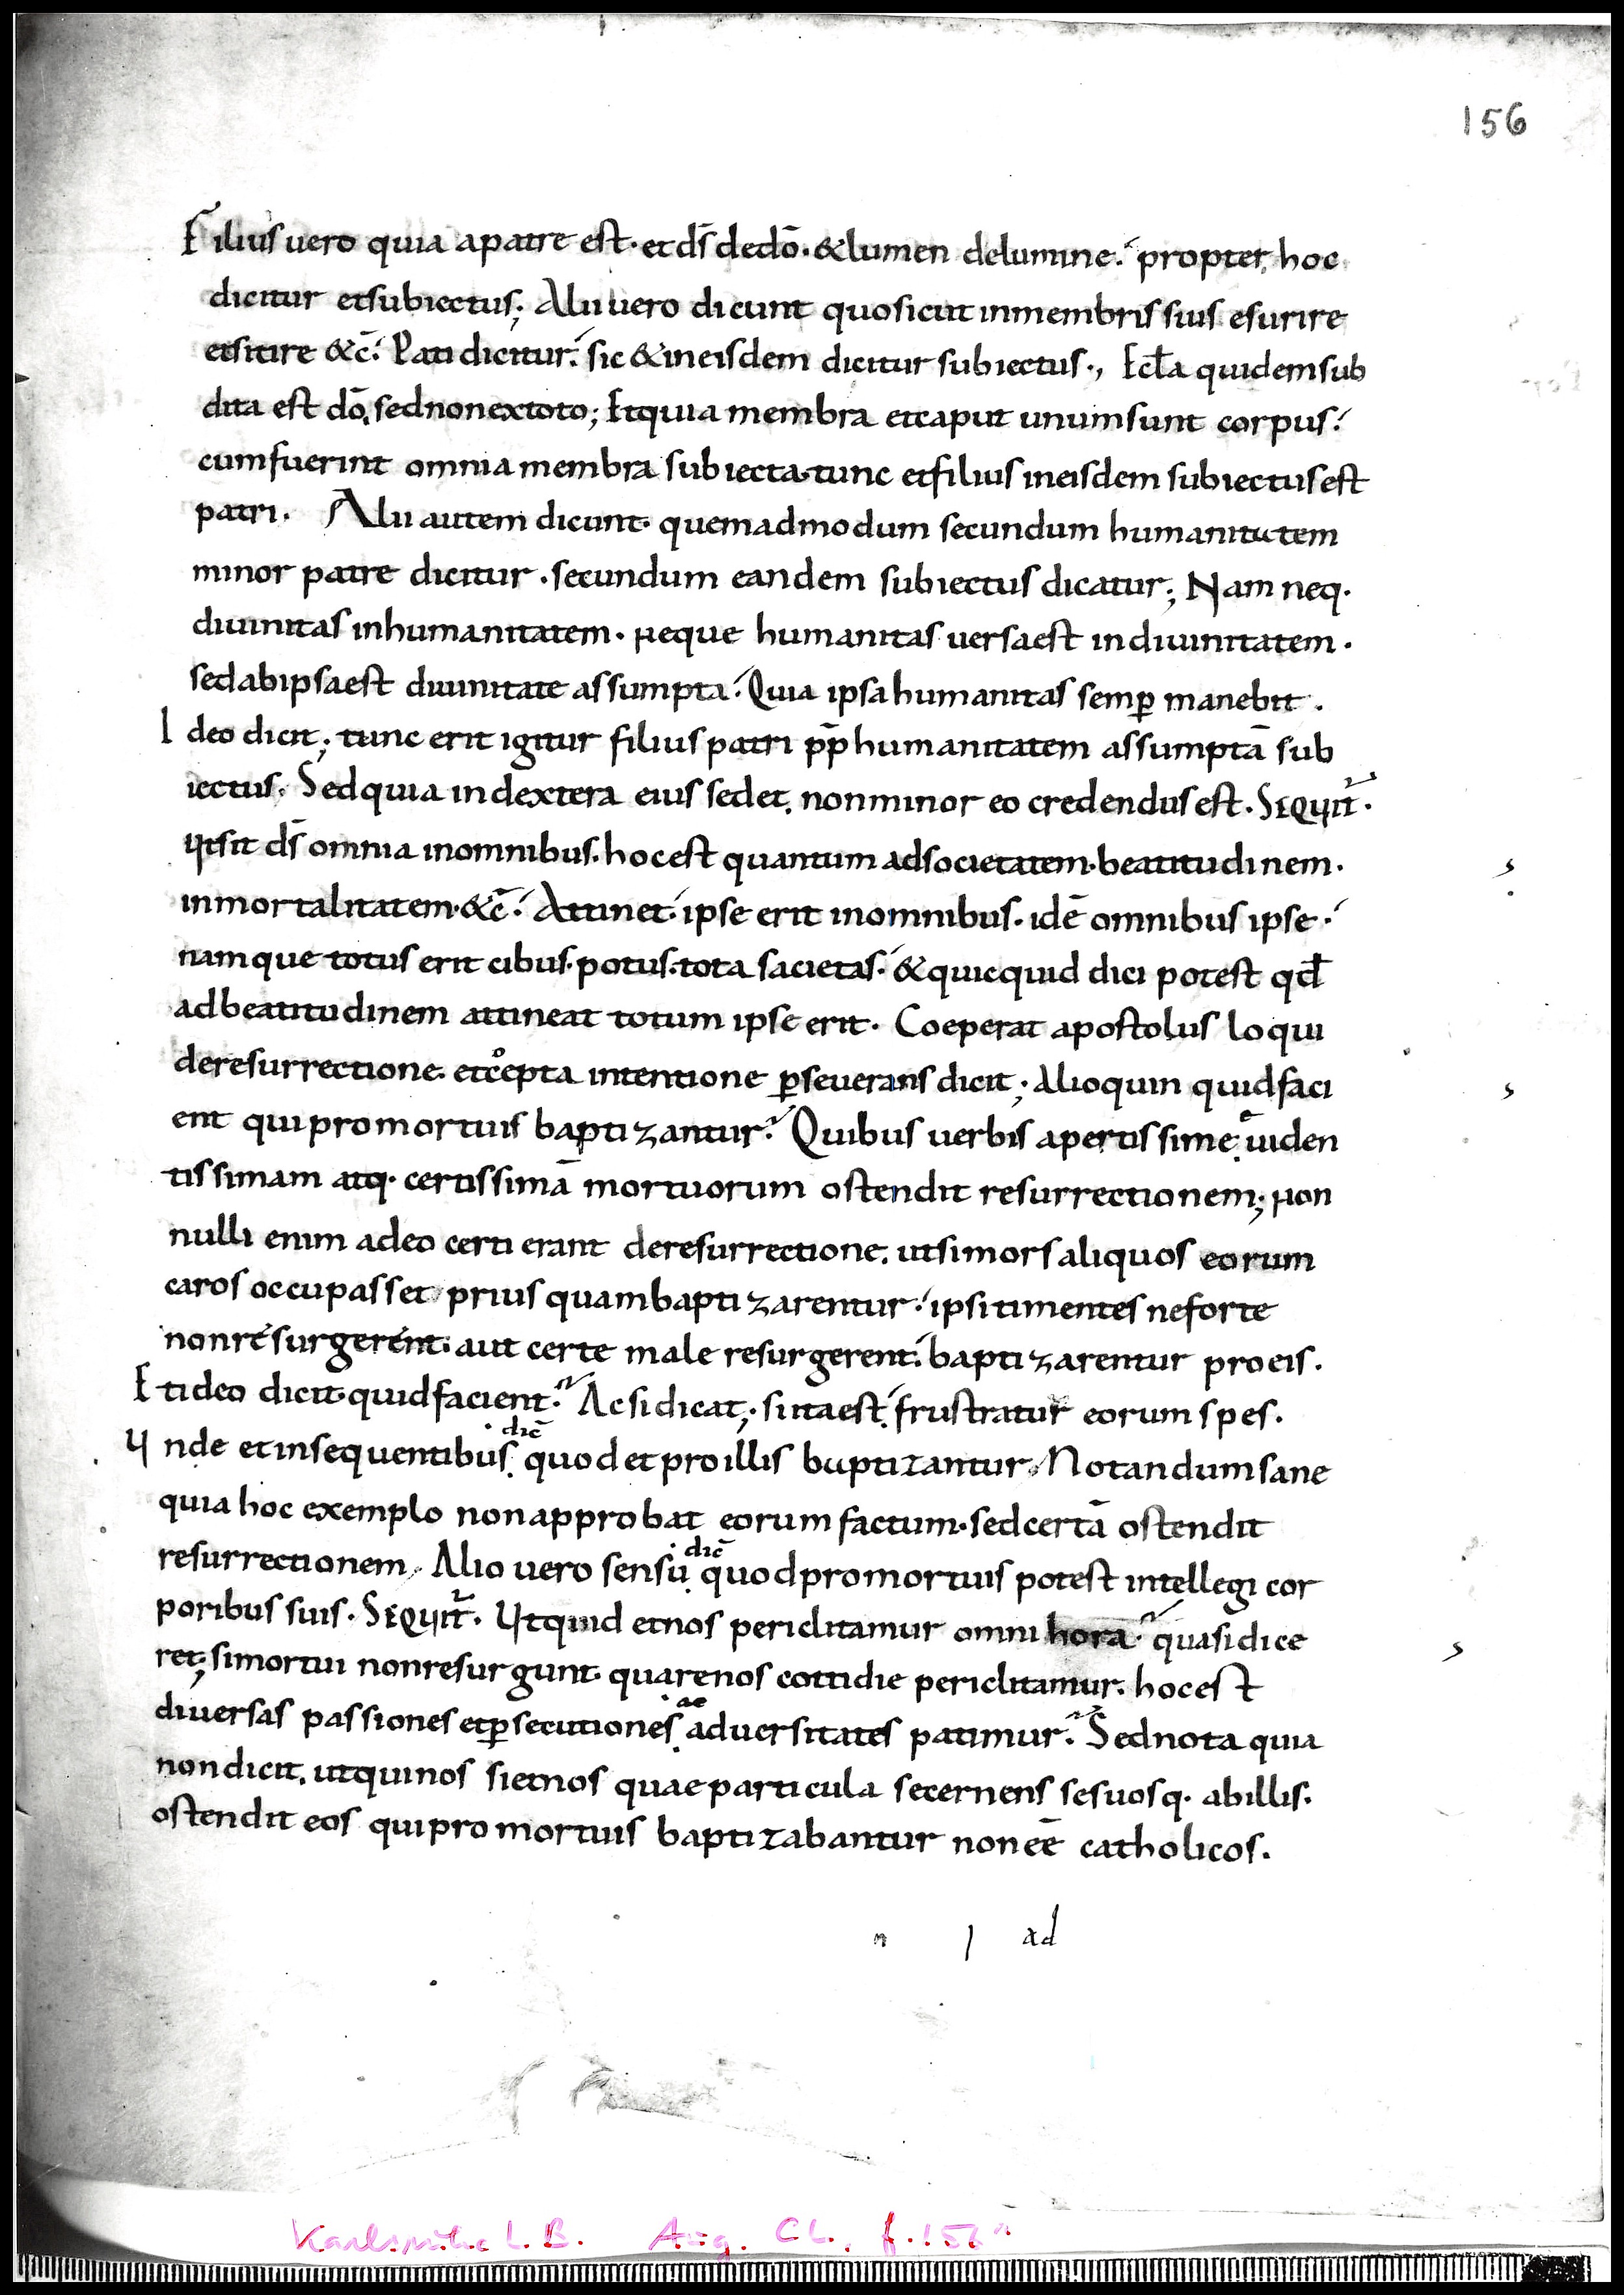 156
Filius uero quia a patre est · et ds̄ de dō · & lumen de lumine ·́ propter hoc
dicitur et subiectus; Alii uero dicunt quo sicut in membris suis esurire
et sitire &c̄ ·́ Pati dicitur ·́ sic & in eisdem dicitur subiectus ·, Eccła quidem sub
dita est dō. sed non ex toto; Et quia membra et caput unum sunt corpus ·́
cum fuerint omnia membra subiecta · tunc et filius in eisdem subiectus est
patri · Alii autem dicunt · quemadmodum secundum humanitatem
minor patre dicitur · secundum eandem subiectus dicatur; Nam neq·
diuinitas in humanitatem · neque humanitas uersa est in diuinitatem ·
sed ab ipsa est diuinitate assumpta ·́ Quia ipsa humanitas semp̄ manebit ·
Ideo dicit; tunc erit igitur filius patri pp̄ humanitatem assumptā sub
iectus · Sed quia in dextera eius sedet. non minor eo credendus est · SEQUIT̄ ·
Ut sit ds̄ omnia in omnibus · hoc est quantum ad societatem · beatitudinem ·
inmortalitatem · &c̄ ·́ Attinet ·́ ipse erit in omnibus · idē omnibus ipse ·́
namque totus erit cibus · potus · tota sacietas ·́ & quicquid dici potest qđ
ad beatitudinem attineat totum ipse erit · Coeperat apostolus loqui
de resurrectione · et cºepta intentione ꝑseuerans dicit; Alioquin quid faci
ent qui pro mortuis baptizantur ·̃ Quibus uerbis apertissime euiden
tissimam atq· certissimā mortuorum ostendit resurrectionem; non
nulli enim adeo certi erant de resurrectione. ut si mors aliquos eorum
caros occupasset prius quam baptizarentur ·́ ipsi timentes ne forte
non resurgerent · aut certe male resurgerent ·́ baptizarentur pro eis ·
Et ideo dicit · quid facient ·̃ Ac si dicat; si ita est ·́ frustratur eorum spes ·
dic̄
Unde et in sequentibus. quod et pro illis baptizantur, Notandum sane
quia hoc exemplo non approbat eorum factum · sed certā ostendit
dic̄
resurrectionem, Alio uero sensu. quod pro mortuis potest intellegi cor
poribus suis · SEQUIT̄ · Ut quid et nos periclitamur omni hora ·̃ quasi dice
ret; si mortui non resurgunt · quare nos cottidie periclitamur · hoc est
ac
diuersas passiones et ꝑsecutiones. aduersitates patimur ·̃ Sed nota quia
non dicit. ut qui nos si et nos quae particula secernens se suosq· ab illis ·
ostendit eos qui pro mortuis baptizabantur non eē catholicos ·
n l ad
Karlsruhe L. B. Aug. CL, f. 156ʳ